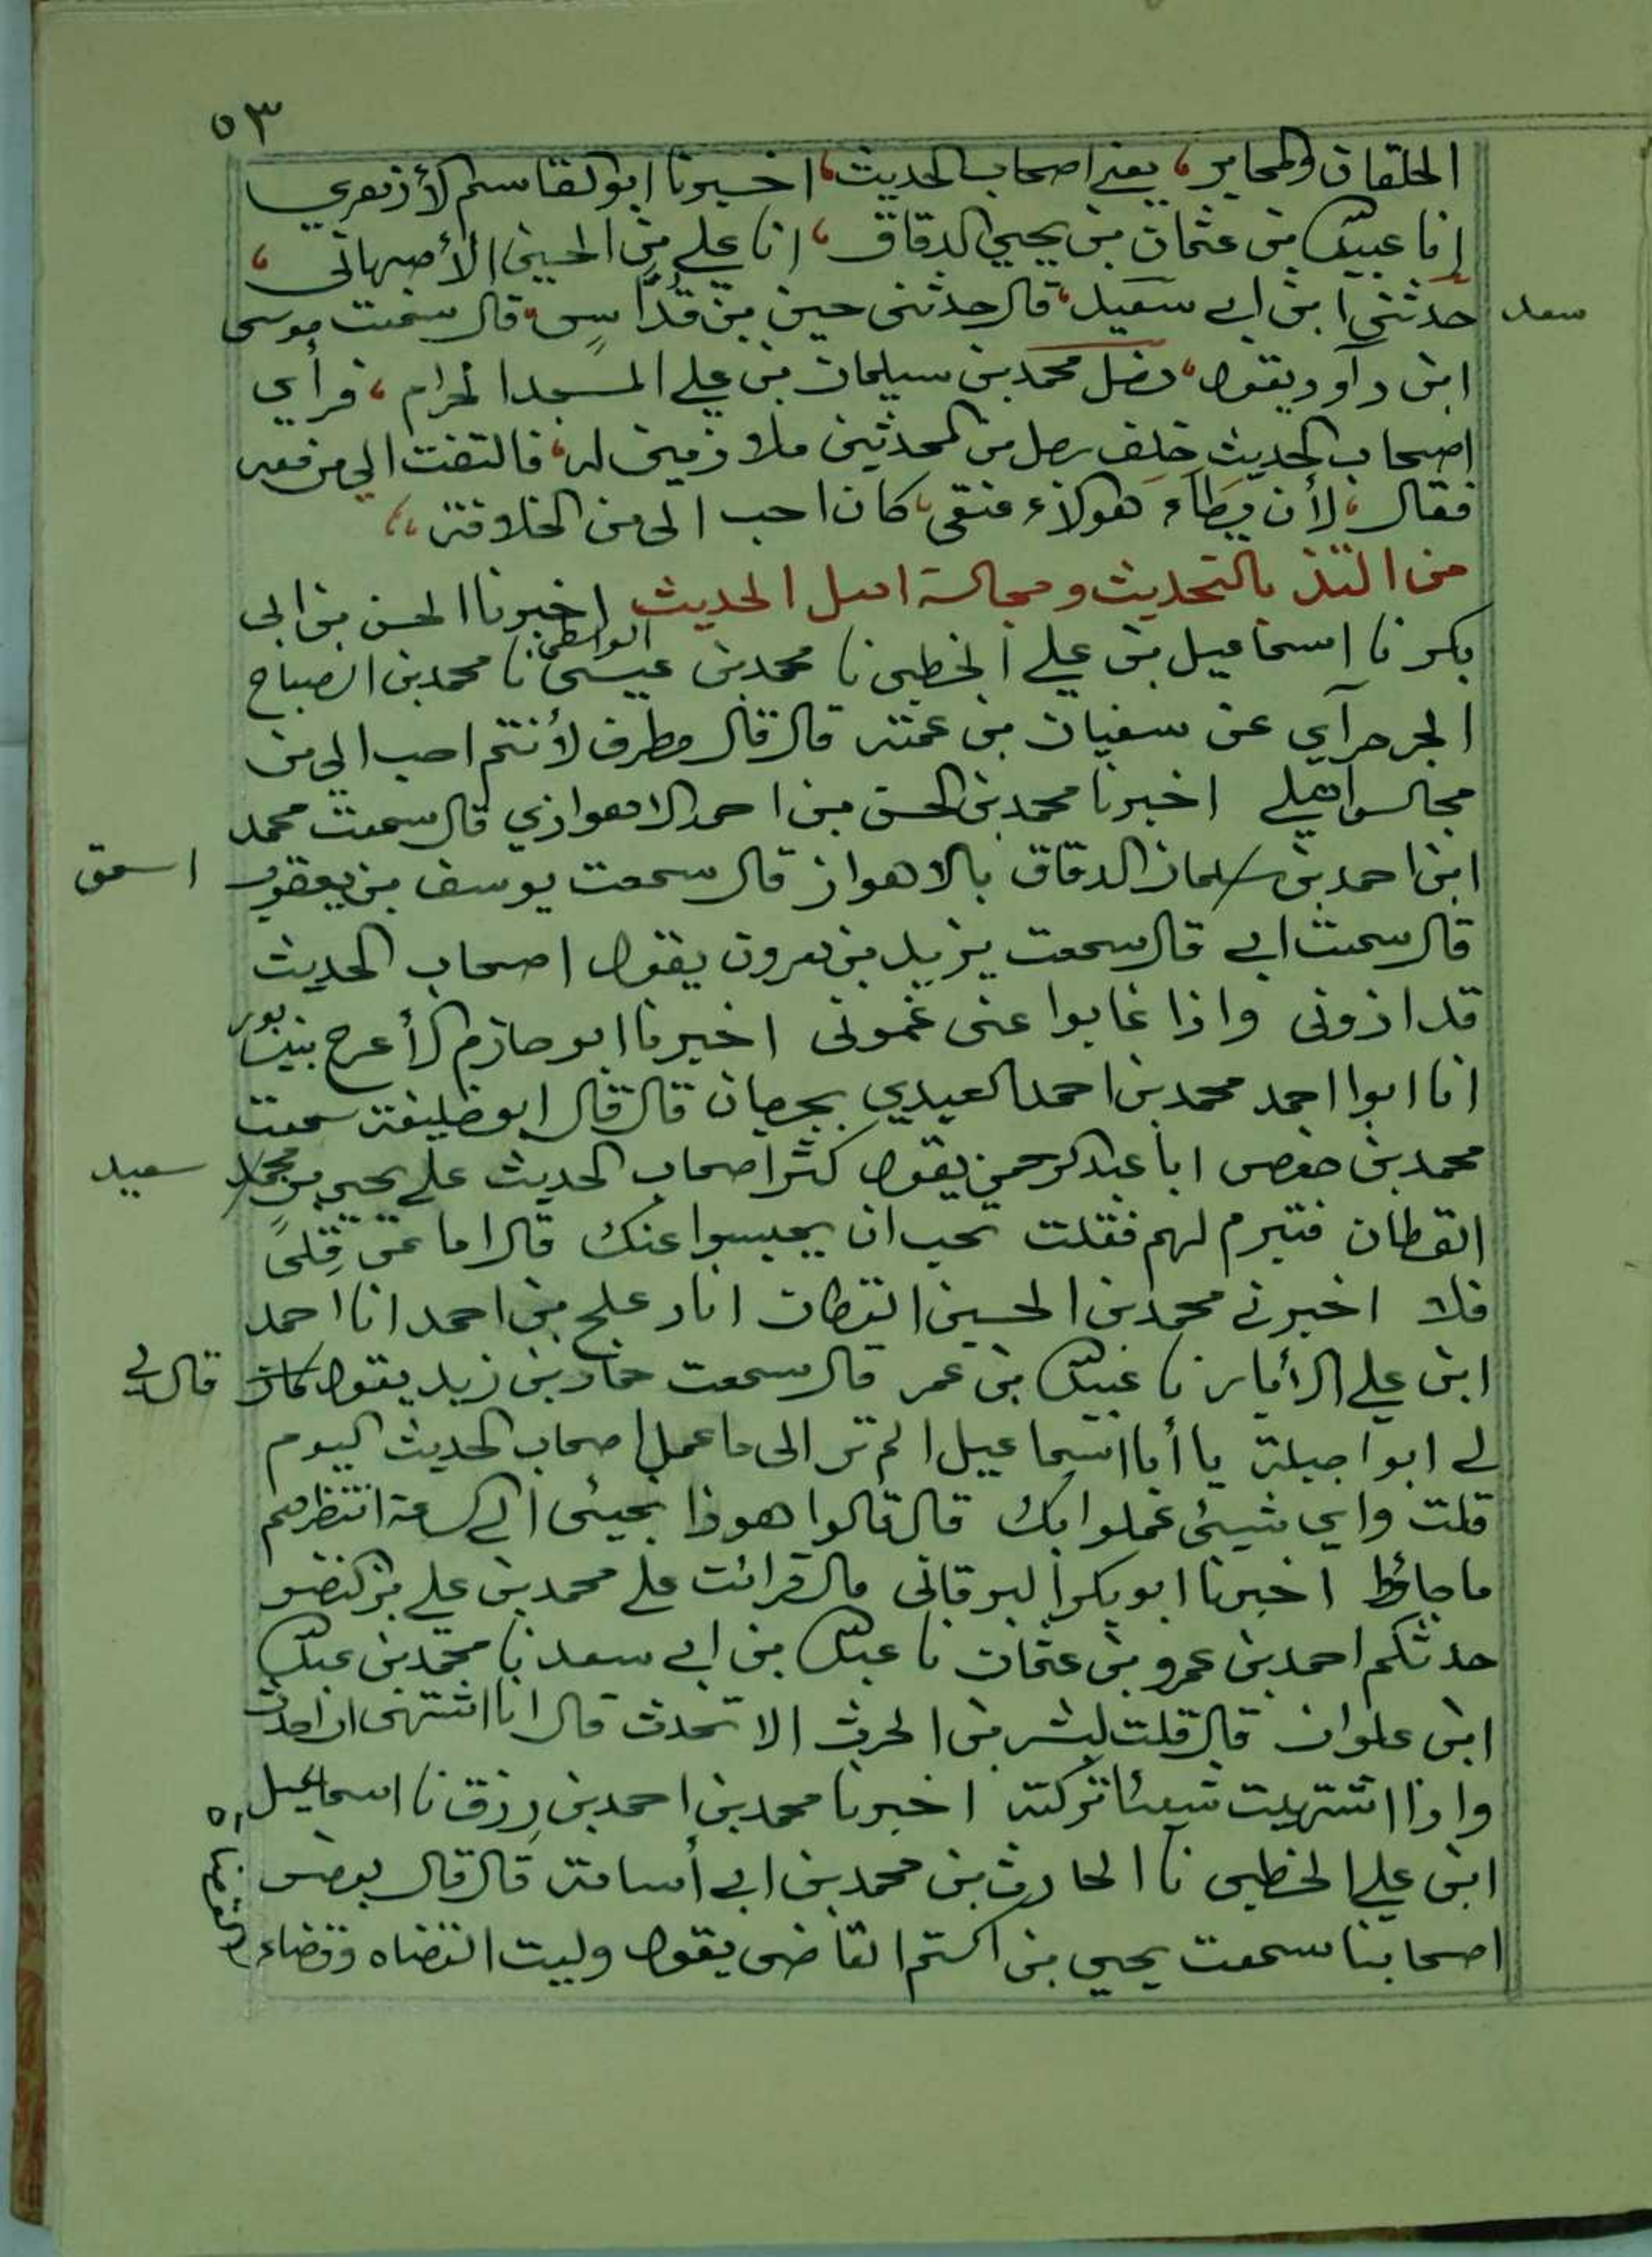 ٥٣
الحلقان والمحابر، يعني اصحاب الحديث، اخبرنا ابو القاسم الأزهري
انا عبيدالله بن عثمان بن يحيي الدقاق، انا علي بن الحسين الأصبهاني،
حدثني ابن ابي سعيد، قال حدثني حسن بن قُدَّاسٍ، قال سمعت موسى
سعد
ابن داوود يقول، دخل محمد بن سليمان بن علي المسجد الحرام، فرأي
اصحاب الحديث خلف رجل من المحدثين ملازمين له، فالتفت الي من معه
فقال، لأن يطاء هولاء عنقي، كان احب الى من الخلافة،،
من التذ بالتحديث ومجالسة اهل الحديث اخبرنا الحسن بن ابي
بكر نا اسماعيل بن علي الخطبى نا محمد بن عيسى الواسطى نا محمد بن الصباح
الجرجرآي عن سفيان بن عمنه قال قال مطرف لأنتم احب الي من
مجالس اهلي اخبرنا محمد بن الحسن بن احمد الاهوازي قال سمعت محمد
ابن احمد بن سلمان الدقاق بالاهواز قال سمعت يوسف بن يعقوب
اسحق
قال سمعت ابي قال سمعت يزيد بن هرون يقول اصحاب الحديث
قد اذونى واذا غابوا عنى غمونى اخبرنا ابو حازم الأعرج بنيسابور
انا ابوا احمد محمد بن احمد العبدي بجرجان قال قال ابو خليفة سمعت
محمد بن حفص ابا عبد الرحمن يقول كثر اصحاب الحديث علي يحيي بن محمد
سعيد
القطان فتبرم لهم فقلت تحب ان يحبسوا عنك قال اما عن قِلىً
فلا اخبرني محمد بن الحسين القطان انا دعلج بن احمد انا احمد
ابن علي الأبار نا عبيدالله بن عمر قال سمعت حماد بن زيد يقول كان
قال لي
لي ابوا جبلة يا أبا اسماعيل الم تر الى ما عمل اصحاب الحديث اليوم
قلت واي شيئى عملوا بك قال قالوا هوذا نجيئى الى الساعة انتظرهم
ما جاؤا اخبرنا ابو بكر البرقانى قال قرائت علي محمد بن علي بن النضر
حدثكم احمد بن عمرو بن عثمان نا عبدالله بن ابي سعد نا محمد بن عبدالله
ابن علوان قال قلت لبشر بن الحرث الا تحدث قال انا اشتهى ان احدث
واذا اشتهيت شيئا تركته اخبرنا محمد بن احمد بن رزق نا اسماعيل
ابن علي الخطبى نا الحارث بن محمد بن ابي أسامة قال قال بعض
اصحابنا سمعت يحيي بن اكثم القاضى يقول وليت القضاه وقضاء